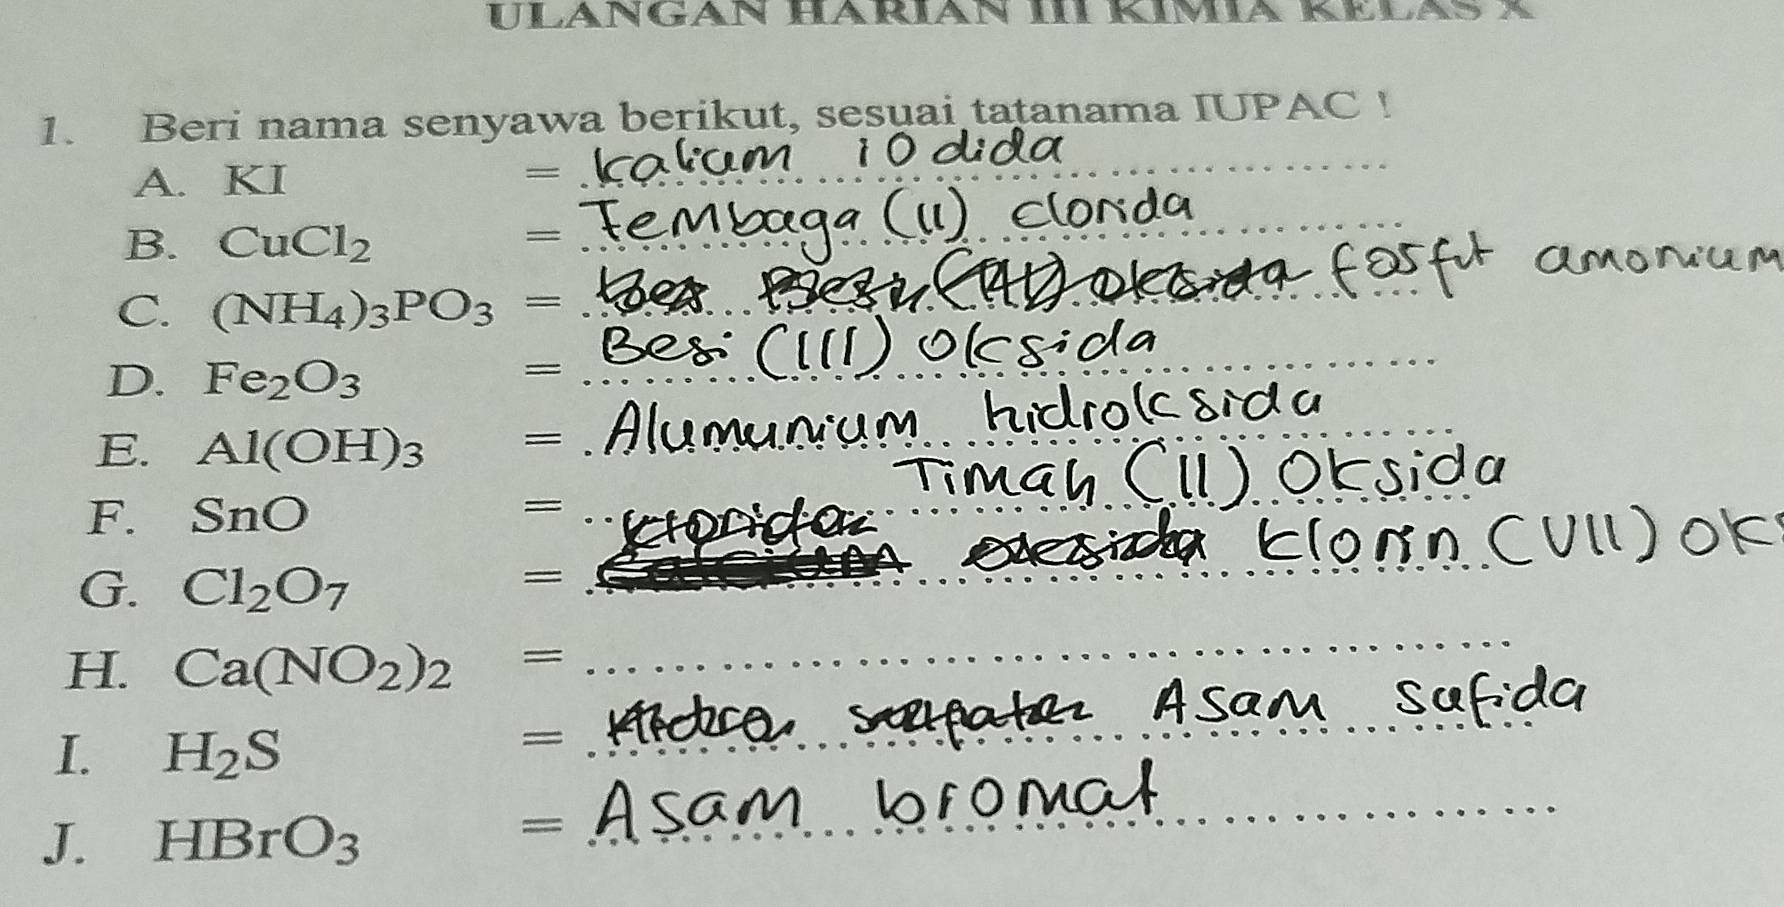 ULANGAN HARIAN III KIMIA KELAS X
1. Beri nama senyawa berikut, sesuai tatanama IUPAC !
A. KI = kalium iodida
B. CuCl₂ = Tembaga (II) clorida
C. (NH₄)₃PO₃ = fosfit amonium
D. Fe₂O₃ = Besi (III) Oksida
E. Al(OH)₃ = Alumunium hidroksida
F. SnO = Timah (II) Oksida
G. Cl₂O₇ = klorin (VII) OK
H. Ca(NO₂)₂ =
I. H₂S = Asam sufida
J. HBrO₃ = Asam bromat